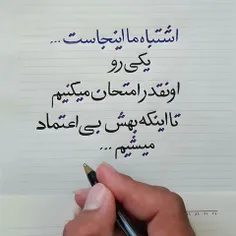 اشتباه ما اینجاست ...
یکی رو
اونقدر امتحان میکنیم
تا اینکه بهش بی اعتماد
میشیم ...